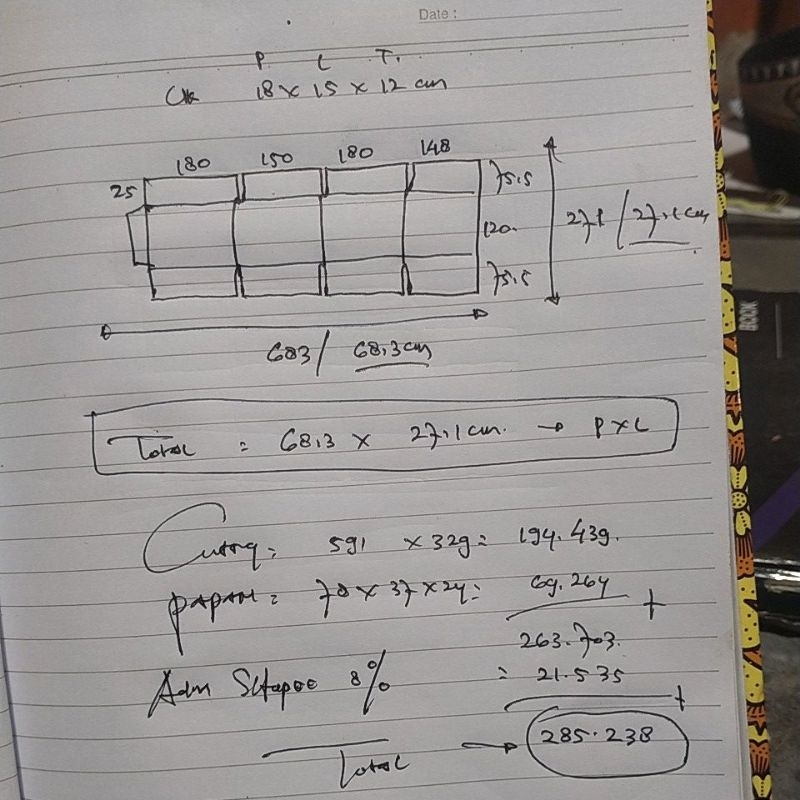 Date :
P L T.
Uk 18 x 15 x 12 cm
180 150 180 148
25
75.5
120
271 / 27.1 cm
75.5
683 / 68.3 cm
Total = 68.3 x 27.1 cm. → P x L
Cutting = 591 x 329 = 194.439.
PAPAN = 78 x 37 x 24 = 69.264 +
263.703.
Adm 8% = 21.535 +
Total → 285.238
BOOK